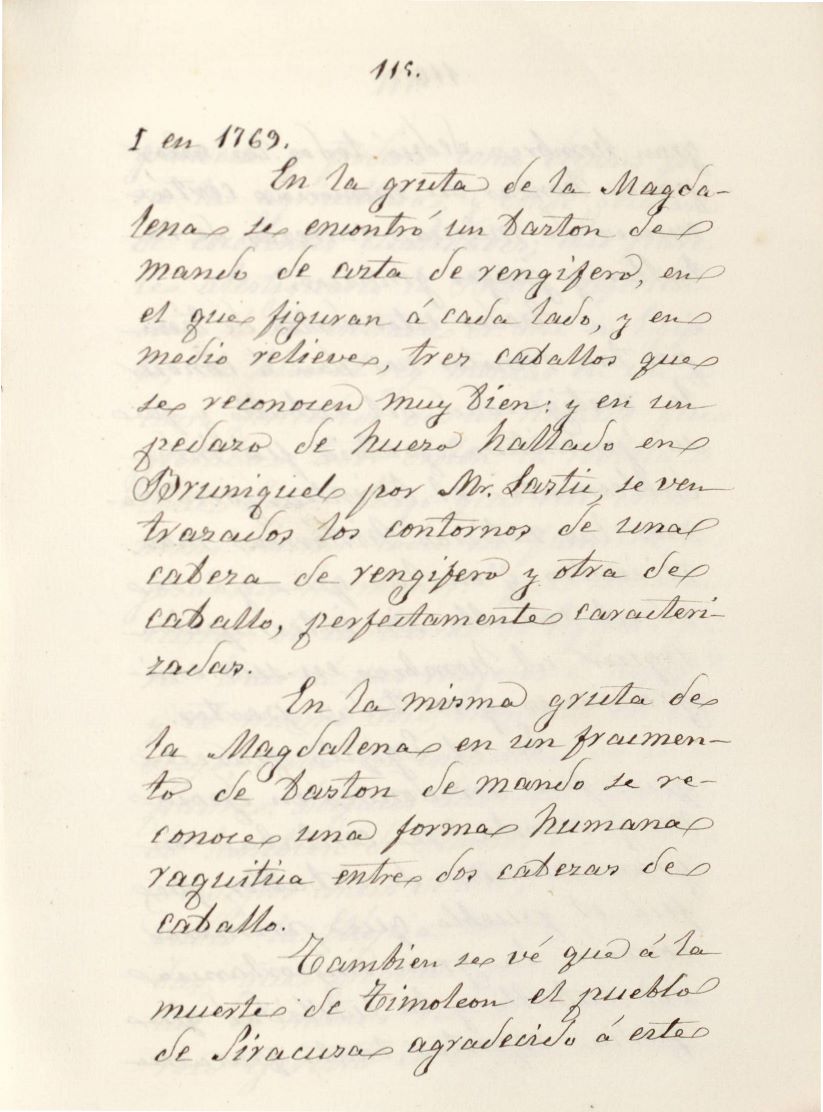 115.
I en 1769.
En la gruta de la Magda-
lena se encontró un baston de
mando de asta de rengifero, en
el que figuran á cada lado, y en
medio relieve, tres caballos que
se reconocen muy bien: y en un
pedazo de hueso hallado en
Bruniquel por Mr. Lastic, se ven
trazados los contornos de una
cabeza de rengifero y otra de
caballo, perfectamente caracteri-
zadas.
En la misma gruta de
la Magdalena en un fracmen-
to de baston de mando se re-
conoce una forma humana
raquitica entre dos cabezas de
caballo.
Tambien se vé que á la
muerte de Timoleon el pueblo
de Siracusa agradecido á este